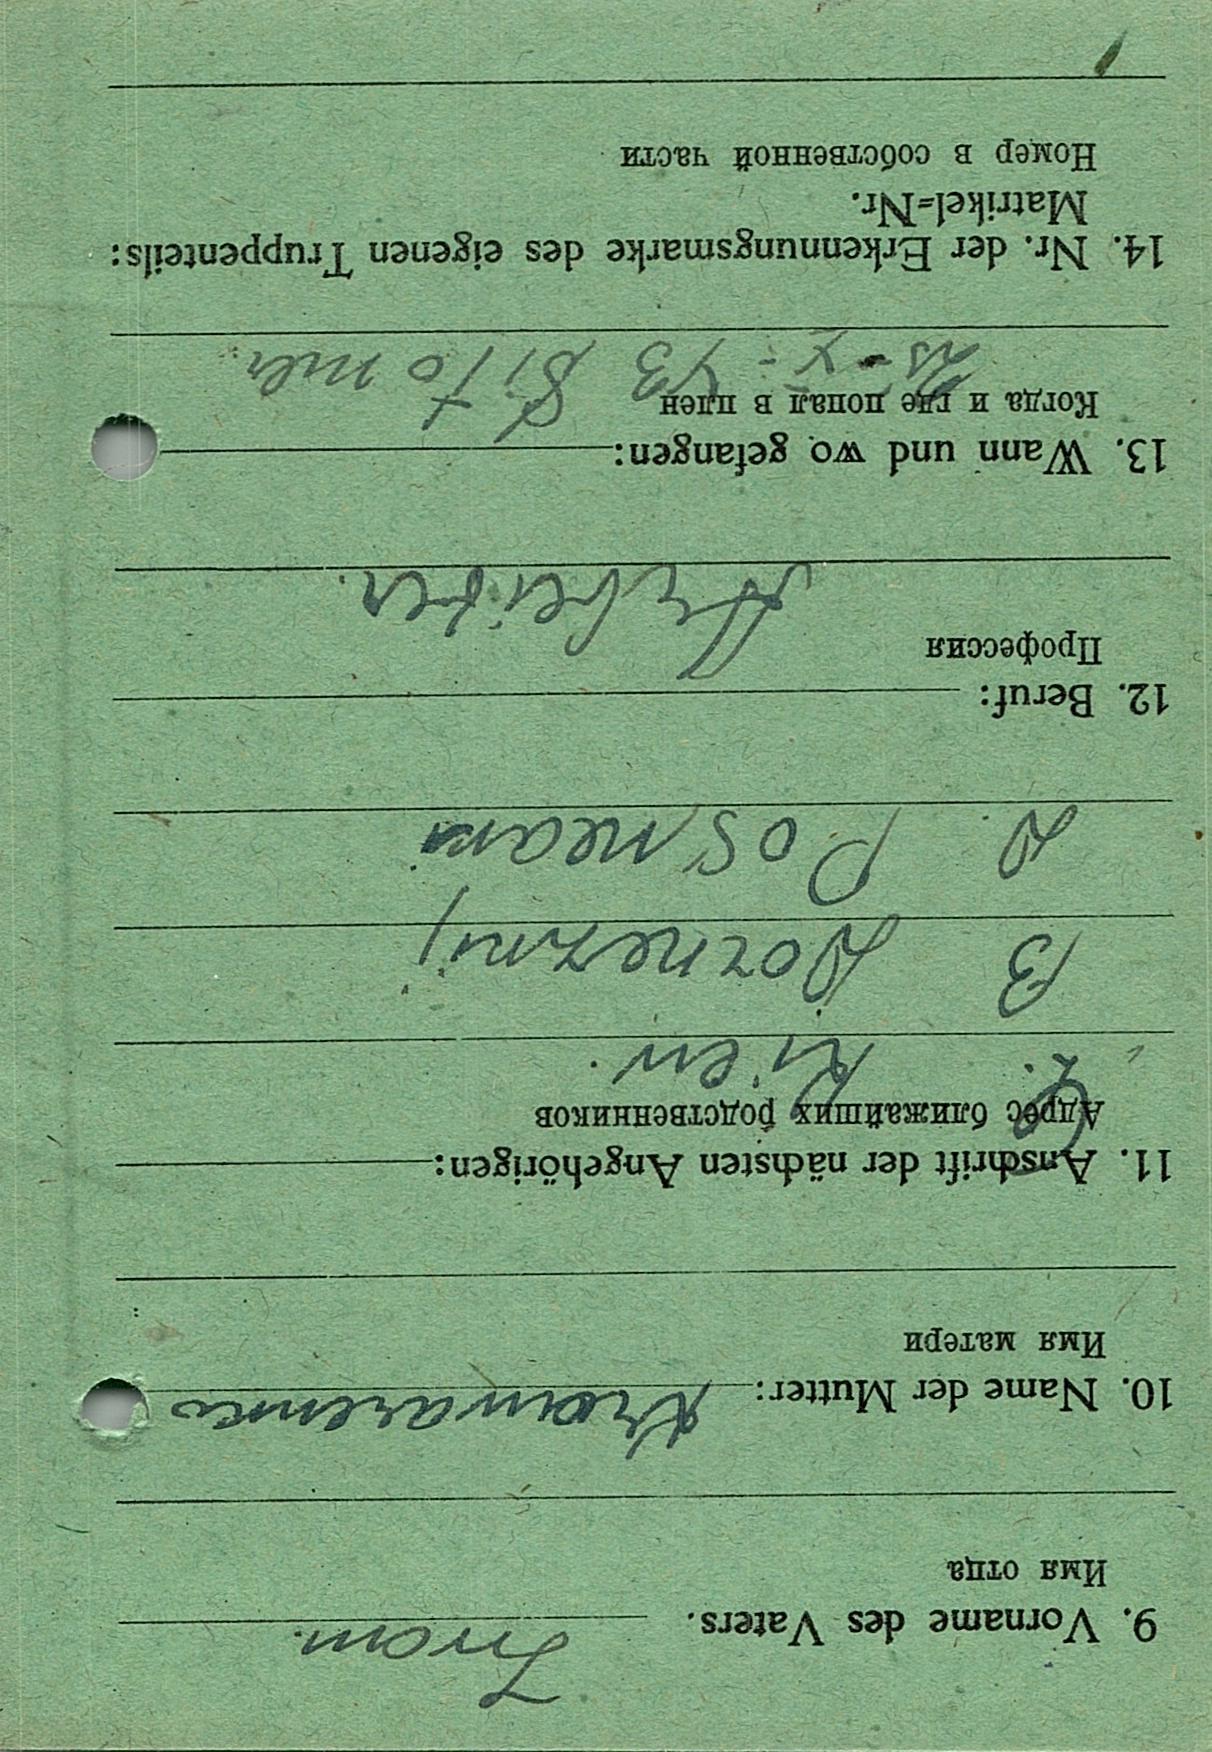 9. Vorname des Vaters. Iwan.
Имя отца
10. Name der Mutter:
Имя матери
11. Anschrift der nächsten Angehörigen:
Адрес ближайших родственников
G. Kiew.
B
D. Posneani
12. Beruf:
Профессия
Arbeiter.
13. Wann und wo gefangen:
Когда и где попал в плен
X - 43
14. Nr. der Erkennungsmarke des eigenen Truppenteils:
Matrikel=Nr.
Номер в собственной части